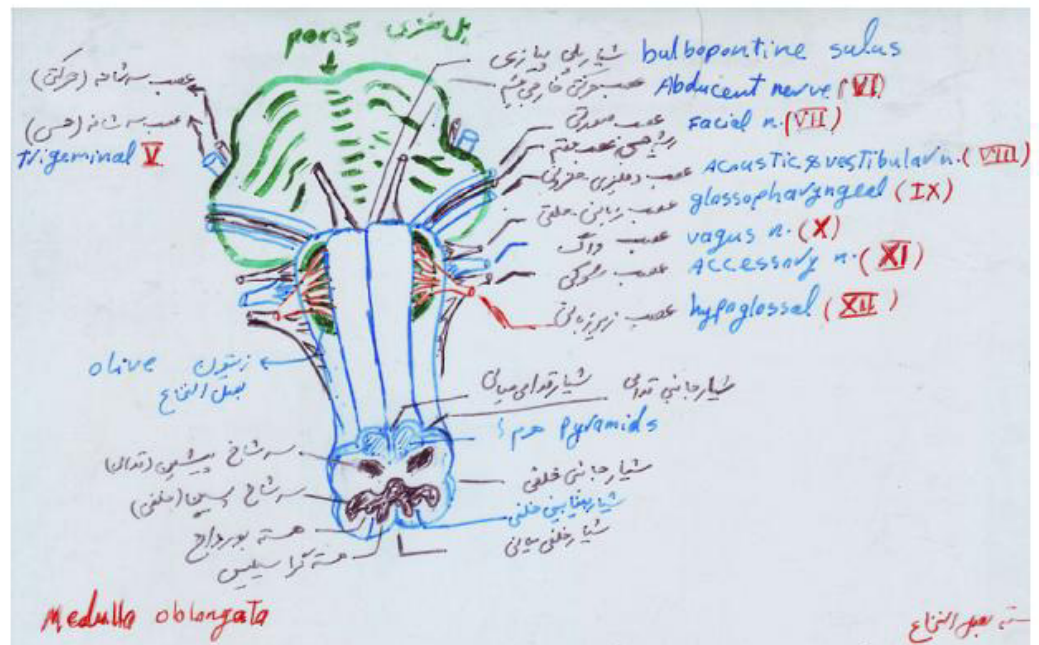 pons پل مغزی
شیار پلی پیازی bulbopontine sulus
عصب حرکتی خارجی چشم Abducent nerve (VI)
عصب صورتی Facial n. (VII)
عصب دهلیزی حلزونی Acoustic & vestibular n. (VIII)
عصب زبانی-حلقی glossopharyngeal (IX)
عصب واگ vagus n. (X)
عصب شوکی Accessory n. (XI)
عصب زیرزبانی hypoglossal (XII)
عصب سه شاخه (حرکتی)
عصب سه شاخه (حسی)
trigeminal V
olive زیتون
بصل النخاع
شیار قدامی میانی
شیار جانبی قدامی
هرم Pyramids
سه شاخ پیشین (قدامی)
سه شاخ پسین (خلفی)
هسته بورداخ
هسته گراسیلیس
شیار جانبی خلفی
شیار بینابینی خلفی
شیار خلفی میانی
Medulla oblongata
بصل النخاع